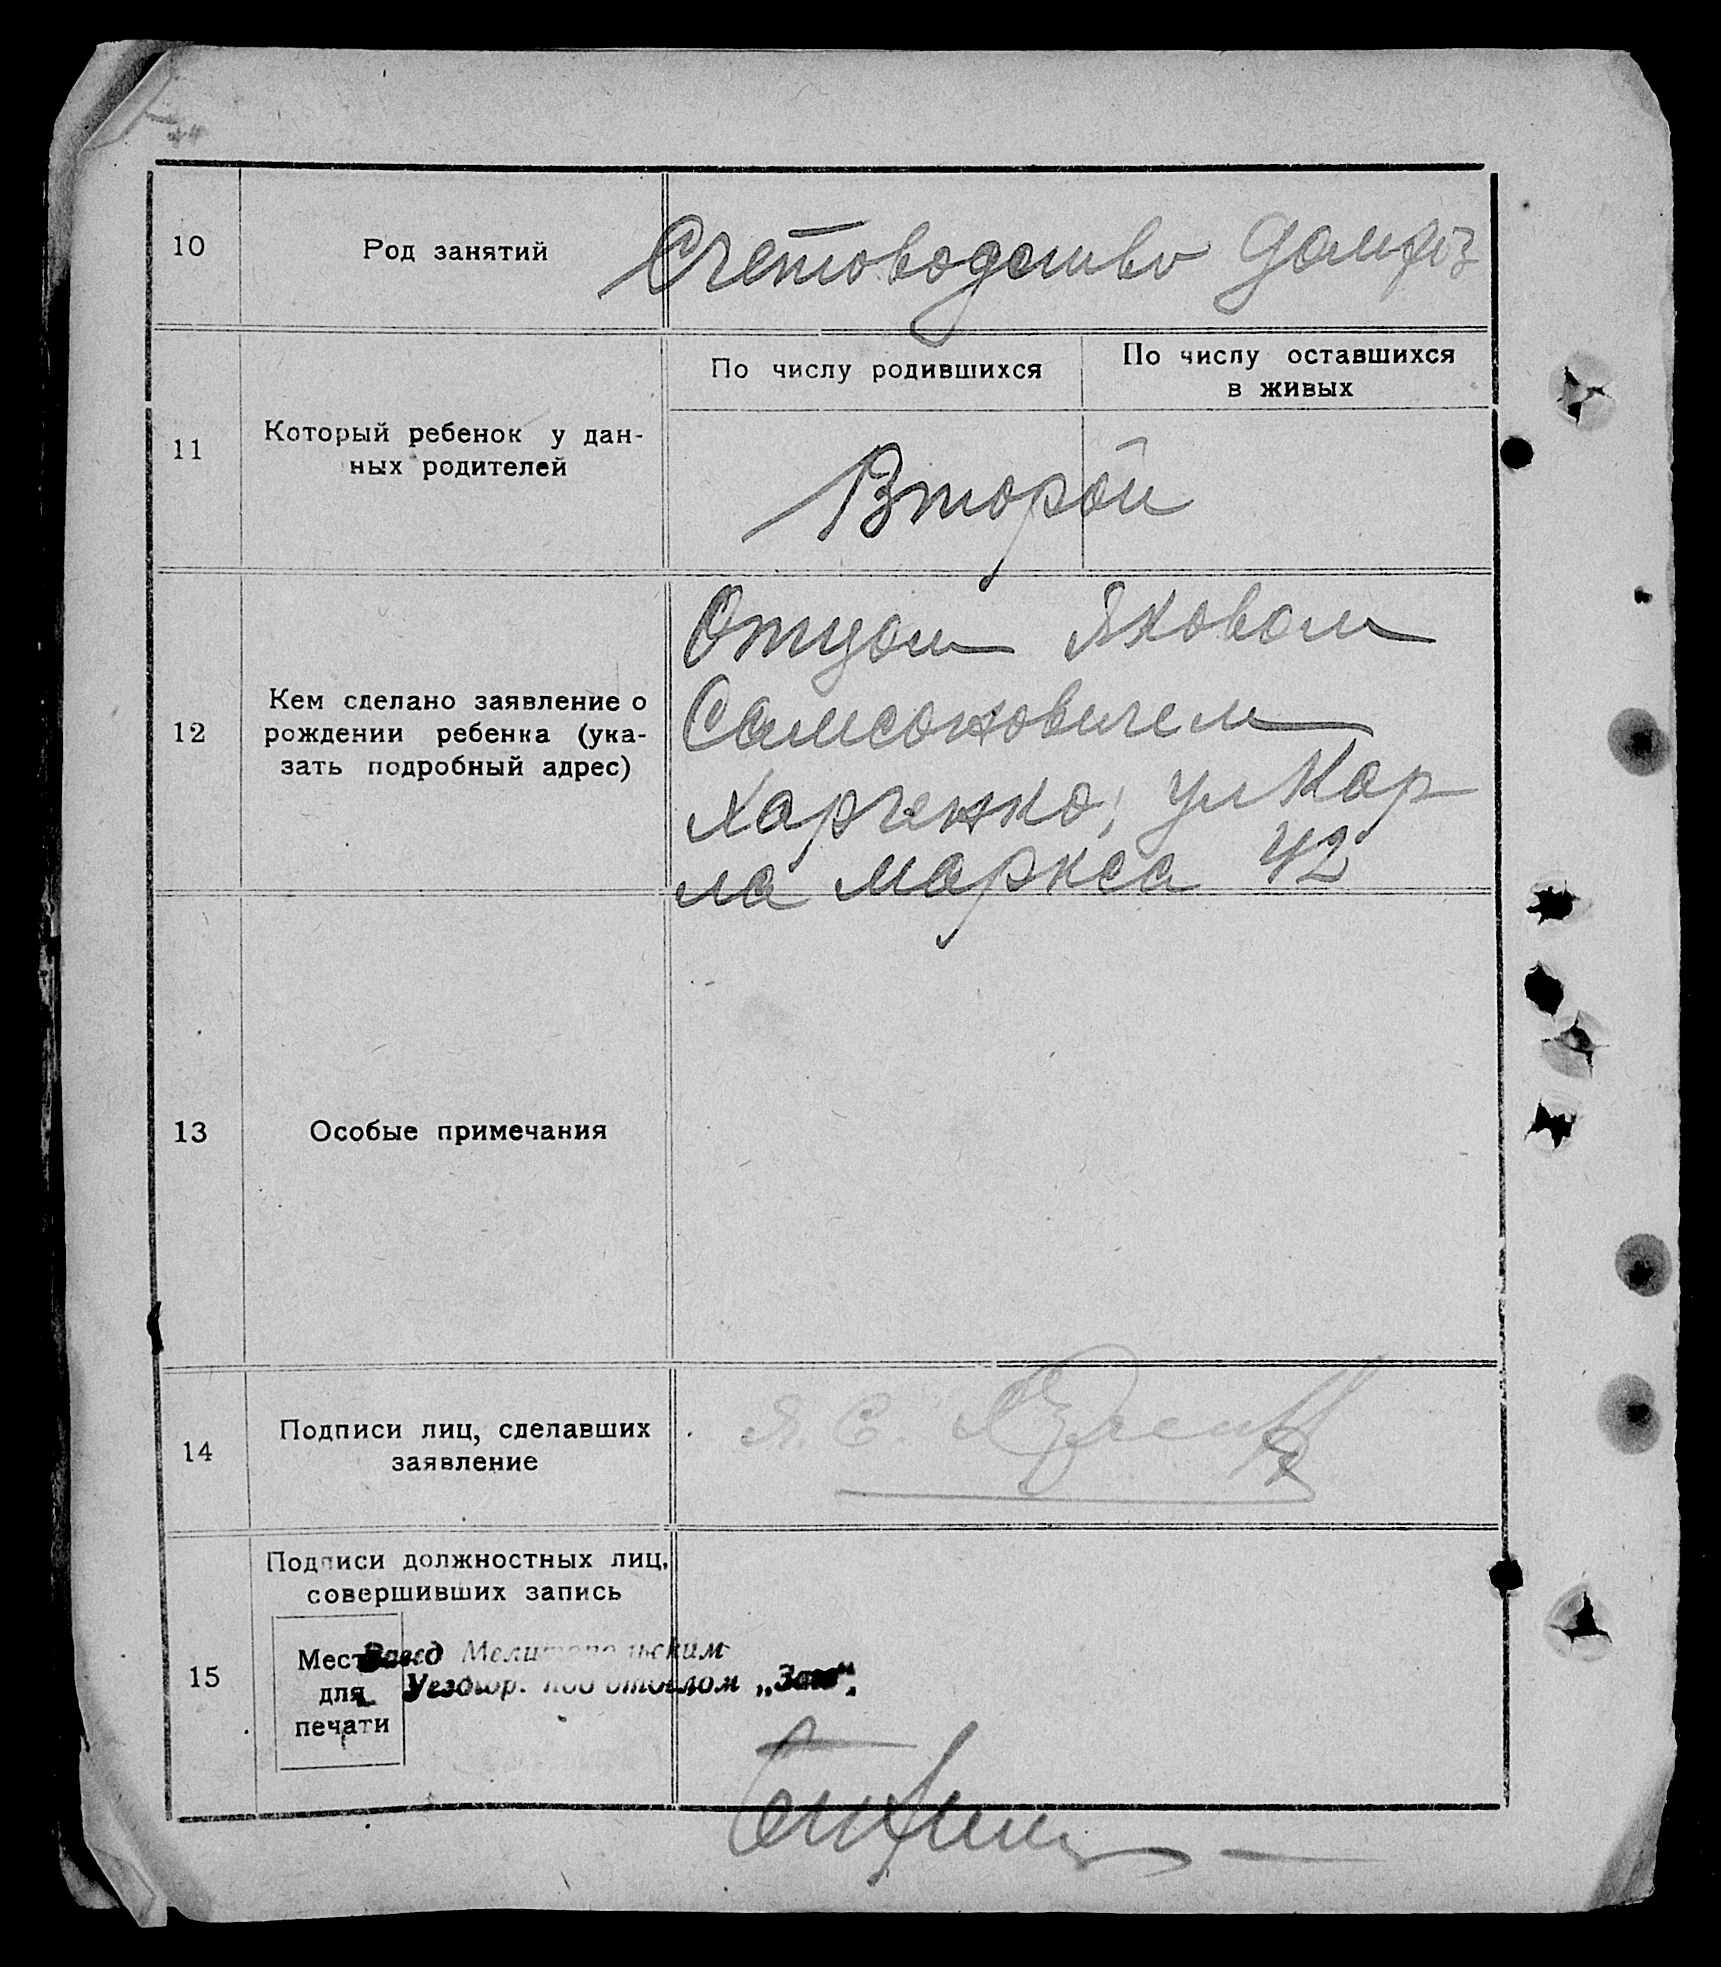 10
Род занятий
Счетоводство Домхоз
11
Который ребенок у дан-
ных родителей
По числу родившихся
По числу оставшихся
в живых
Второй
12
Кем сделано заявление о
рождении ребенка (ука-
зать подробный адрес)
Отцом Яковом
Самсоновичем
Харченко, ул Кар
ла Маркса 42
13
Особые примечания
14
Подписи лиц, сделавших
заявление
Я. С.
15
Подписи должностных лиц,
совершивших запись
Место
для
печати
Завед Мелитопольским
подотделом „Загс"